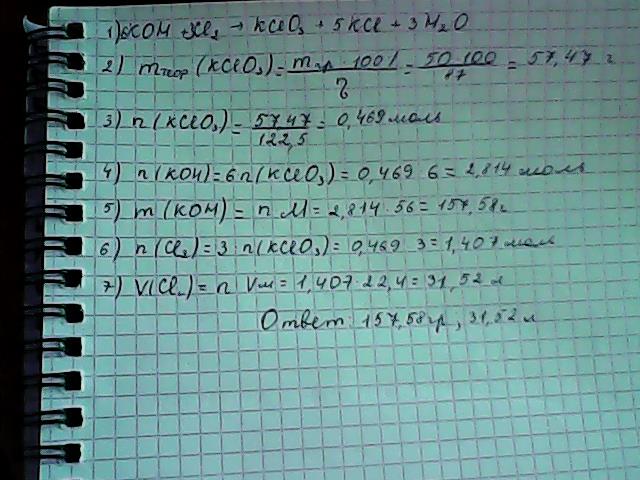 1) 6KOH + 3Cl₂ → KClO₃ + 5KCl + 3H₂O
2) mтеор (KClO₃) = mпр · 100% / η = 50 · 100 / 87 = 57,47 г
3) n (KClO₃) = 57,47 / 122,5 = 0,469 моль
4) n (KOH) = 6n (KClO₃) = 0,469 · 6 = 2,814 моль
5) m (KOH) = n · M = 2,814 · 56 = 157,58 г
6) n (Cl₂) = 3 · n (KClO₃) = 0,469 · 3 = 1,407 моль
7) V(Cl₂) = n · Vм = 1,407 · 22,4 = 31,52 л
Ответ: 157,58 гр, 31,52 л